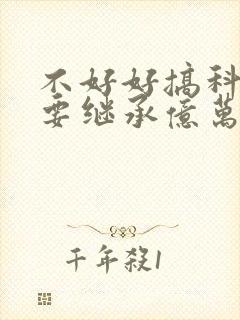 不好好搞科
要继承億萬
千年殺1